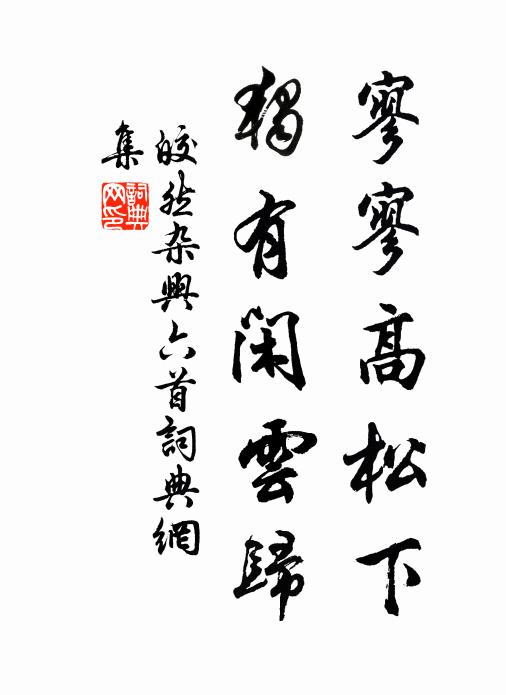 寥寥高松下
獨有閑雲歸
皎然杂興六首詞典網
集
詞典
网印